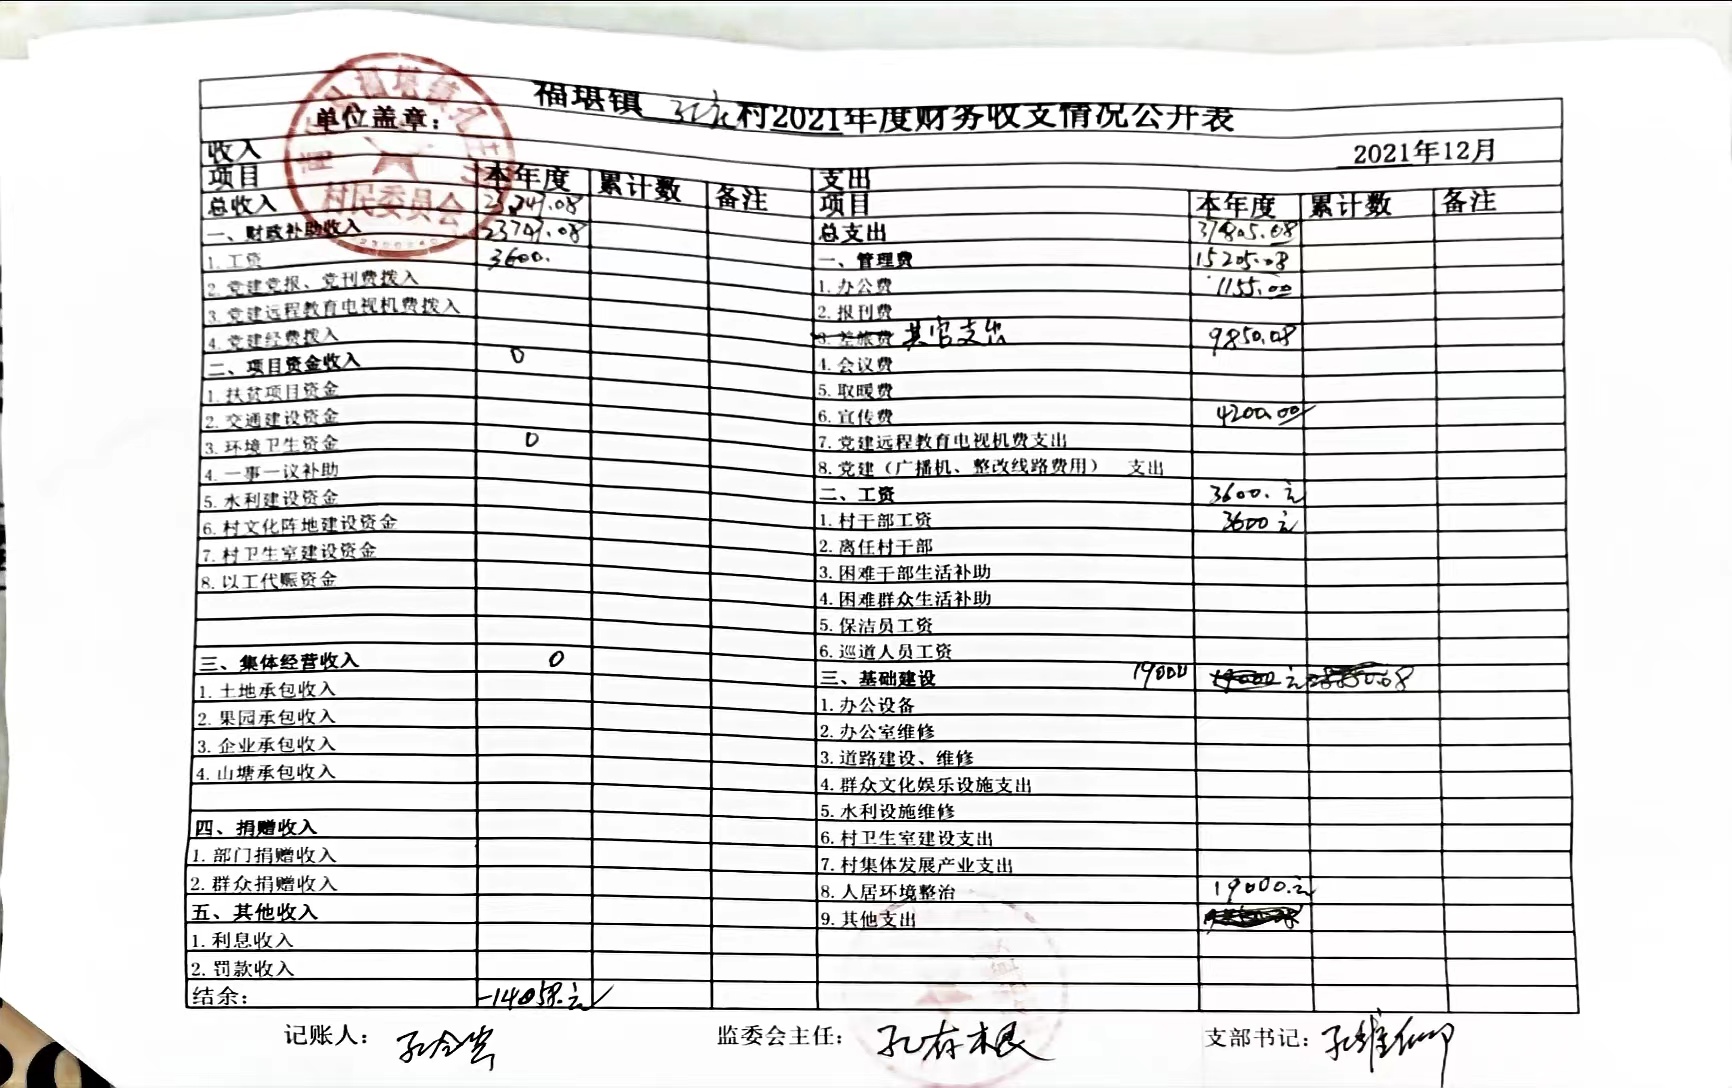 福堪镇 孔庄村2021年度财务收支情况公开表
单位盖章：
村民委员会
2021年12月
收入
项目 本年度 累计数 备注
总收入
一、财政补助收入 23747.08
1.工资 3600.
2.党建党报、党刊费拨入
3.党建远程教育电视机费拨入
4.党建经费拨入
二、项目资金收入 0
1.扶贫项目资金
2.交通建设资金
3.环境卫生资金 0
4.一事一议补助
5.水利建设资金
6.村文化阵地建设资金
7.村卫生室建设资金
8.以工代赈资金
三、集体经营收入 0
1.土地承包收入
2.果园承包收入
3.企业承包收入
4.山塘承包收入
四、捐赠收入
1.部门捐赠收入
2.群众捐赠收入
五、其他收入
1.利息收入
2.罚款收入
结余： -14058.元
支出
项目 本年度 累计数 备注
总支出 37805.08
一、管理费 15205.08
1.办公费 1155.00
2.报刊费
3.差旅费 其它支出 9850.08
4.会议费
5.取暖费
6.宣传费 4200.00
7.党建远程教育电视机费支出
8.党建（广播机、整改线路费用） 支出
二、工资 3600.元
1.村干部工资 3600元
2.离任村干部
3.困难干部生活补助
4.困难群众生活补助
5.保洁员工资
6.巡道人员工资
三、基础建设 19000 19000元
1.办公设备
2.办公室维修
3.道路建设、维修
4.群众文化娱乐设施支出
5.水利设施维修
6.村卫生室建设支出
7.村集体发展产业支出
8.人居环境整治 19000.元
9.其他支出
记账人： 监委会主任：孔存根 支部书记：孔维仰